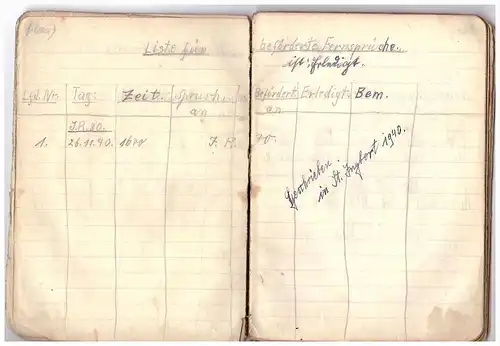 Liste für beförderte Fernsprüche.
ist: Erledigt.
Lfd. Nr. Tag: Zeit. Spruch. Befördert Erledigt. Bem.
an
J.R. 80.
1. 26.11.40. 1600 J. R. 70.
Geschrieben
in St. Ingbert 1940.